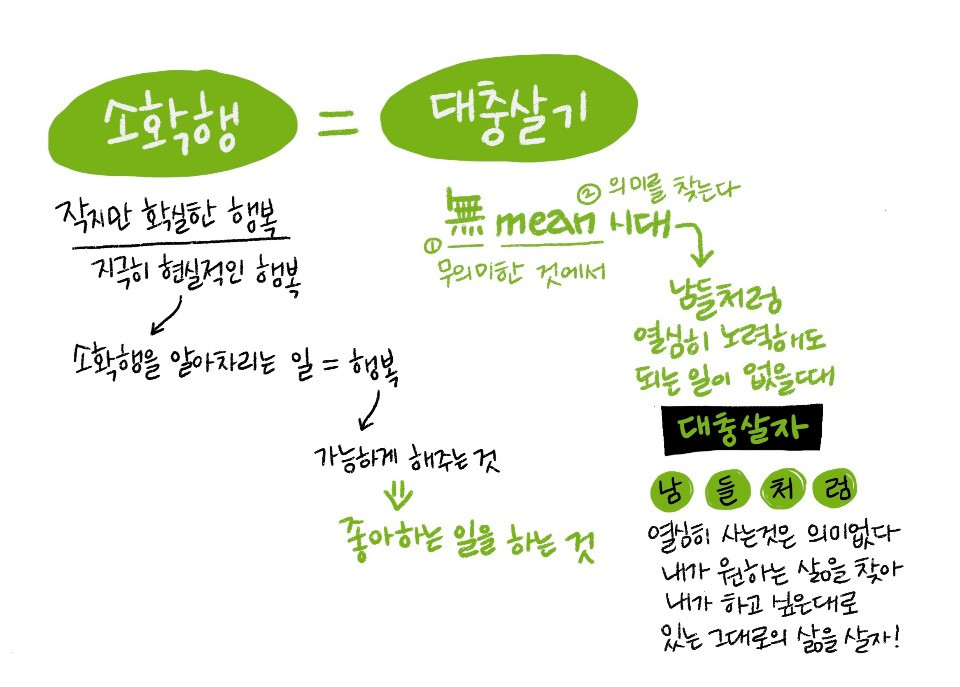 소확행 = 대충살기
작지만 확실한 행복
지극히 현실적인 행복
소확행을 알아차리는 일 = 행복
가능하게 해주는 것
좋아하는 일을 하는 것
② 의미를 찾는다
無 mean 시대
①
무의미한 것에서
남들처럼
열심히 노력해도
되는 일이 없을때
대충살자
남들처럼
열심히 사는것은 의미없다
내가 원하는 삶을 찾아
내가 하고 싶은대로
있는 그대로의 삶을 살자!